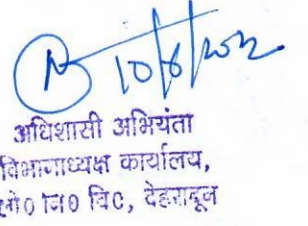 10/8/2022
अधिशासी अभियंता
विभागाध्यक्ष कार्यालय,
लो० नि० वि०, देहरादून